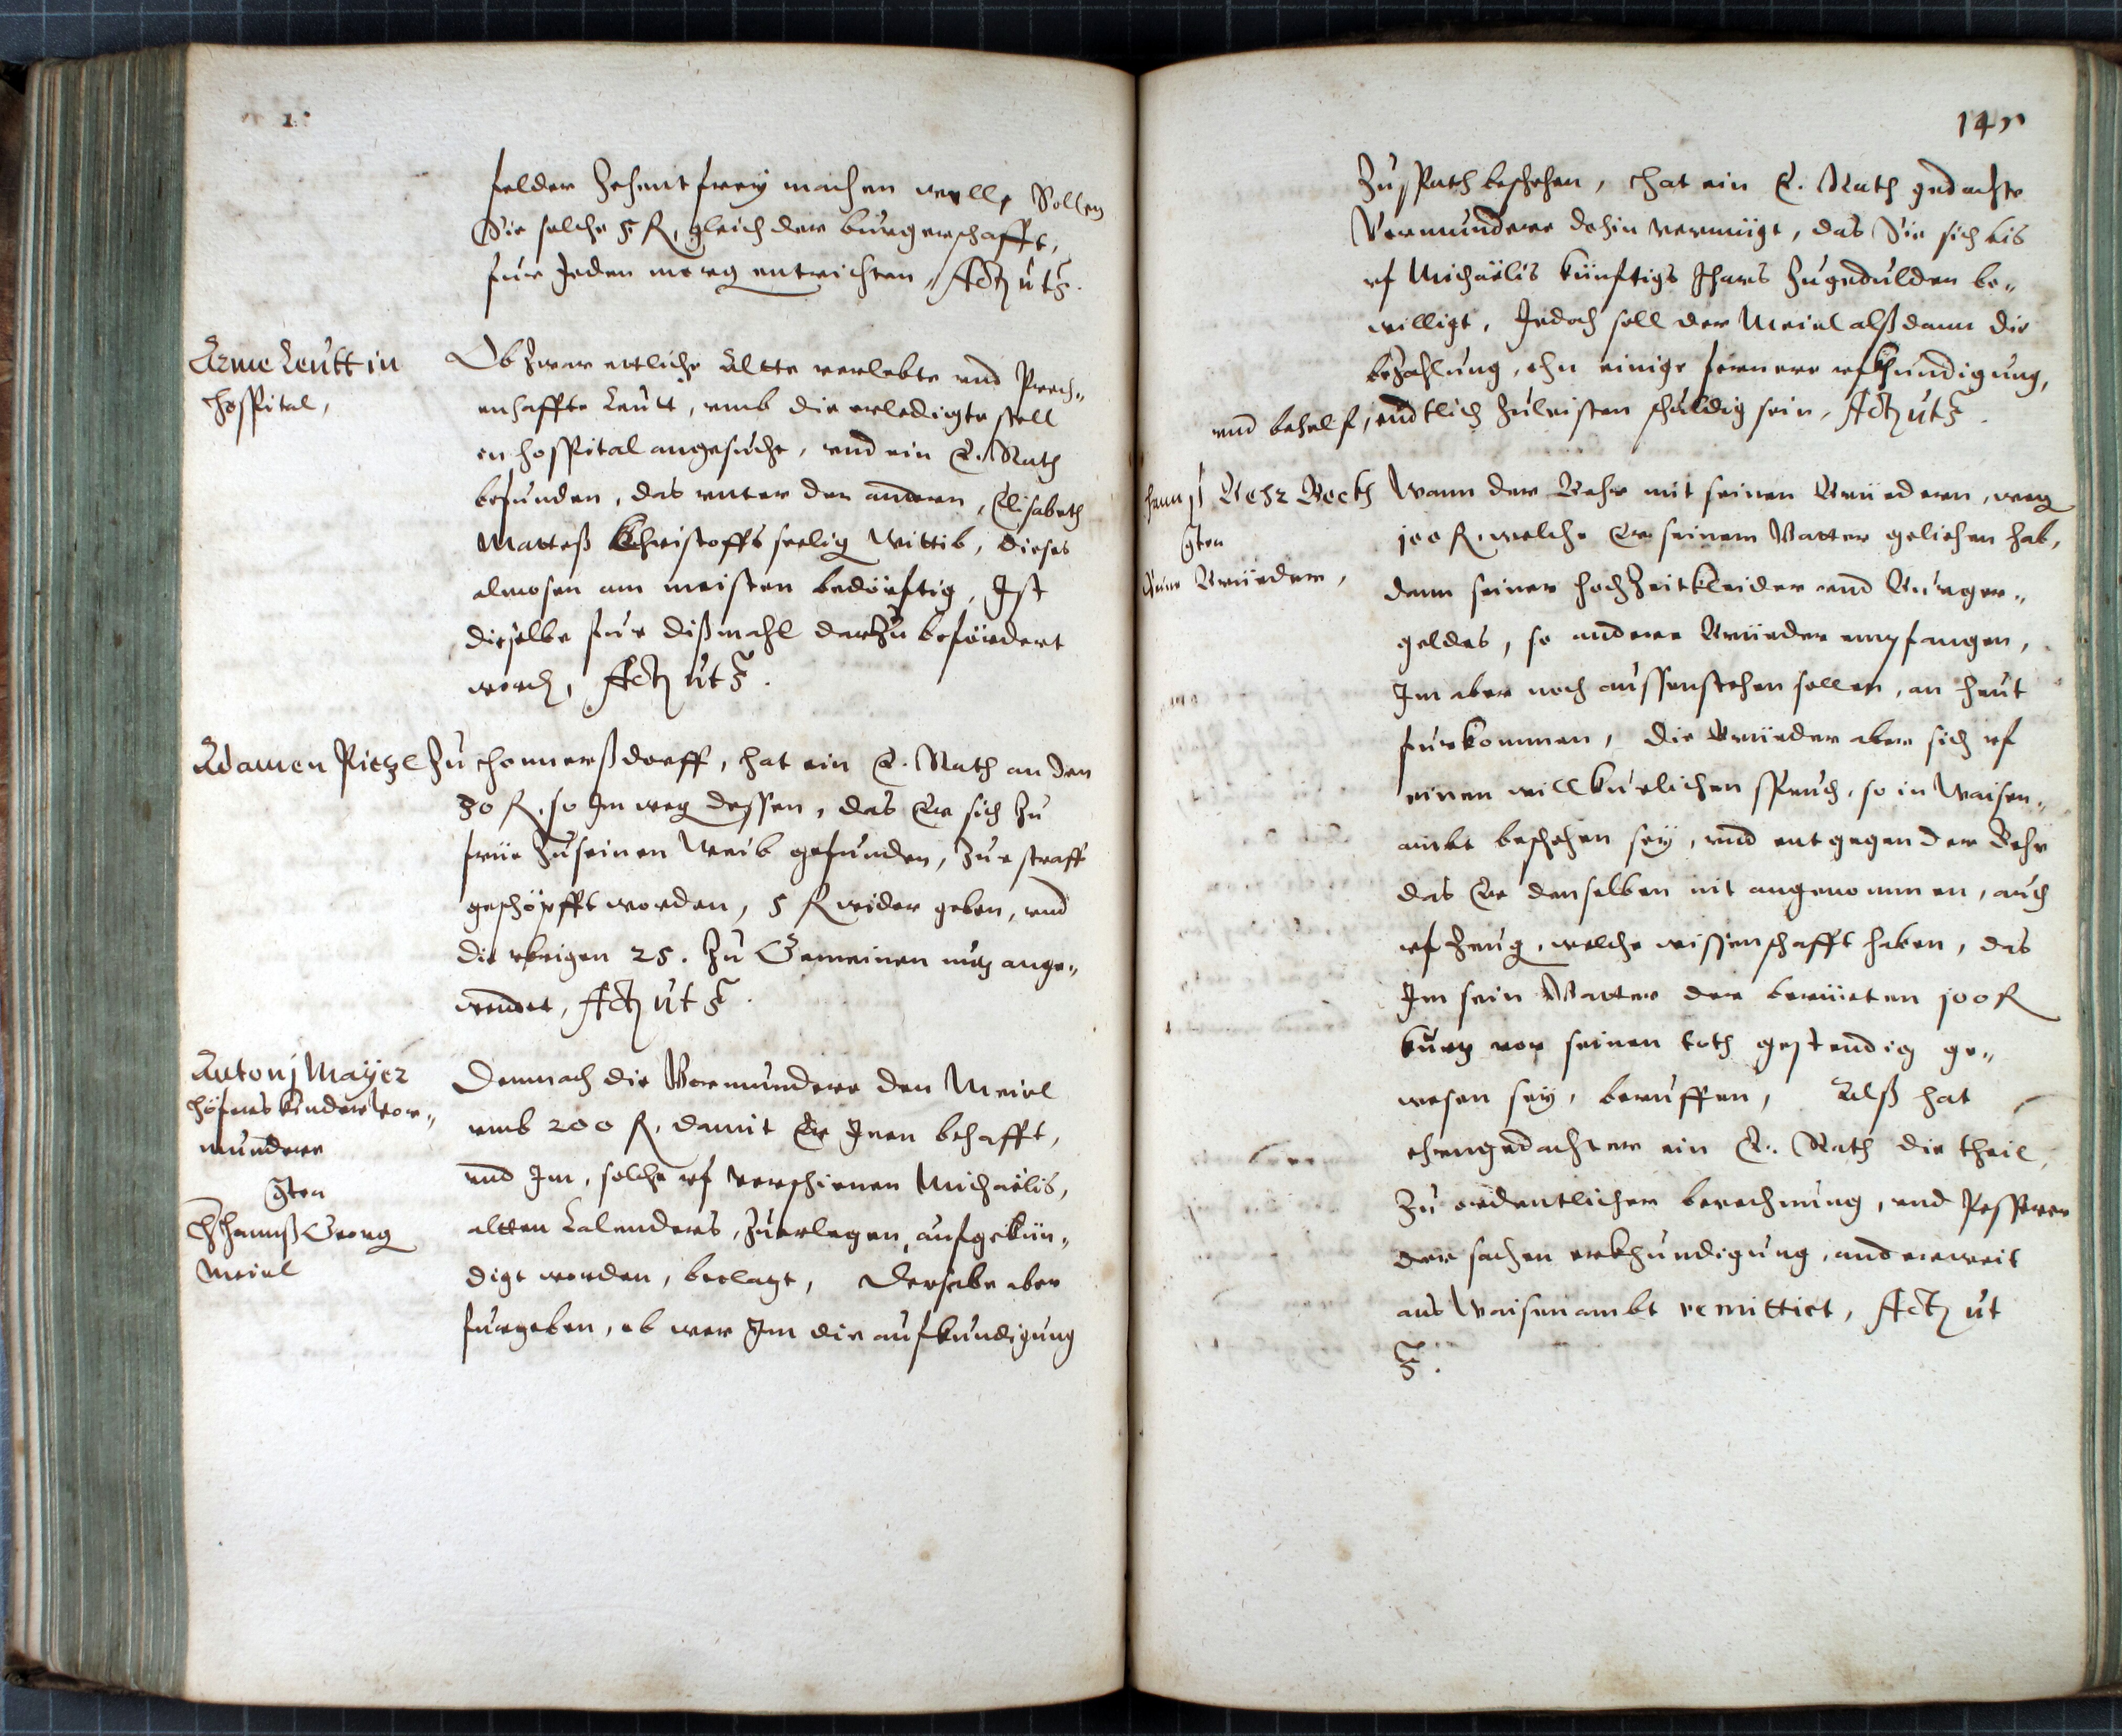 felder Zehent frey machen woll, Sollen
Sie solche 5 R, gleich der burgerschafft,
fur Jeden morg entrichten, Act ut s.
Arme Leutt in
Hospital,
Ob zwar ettliche Altte verlebte vnd Prech-
enhaffte Leutt, vmb die erledigte stell
in hospital angesucht, vnd ein E. Rath
befunden, das vnter den andern, Elisabeth
Matteß Christoffs seelig Wittib, dieses
almosen am meisten bedörftig, Ist
dieselbe fur dißmahl darzu befördert
word, Act ut s.
Adamen Pietzl zu Honnerßdorff, hat ein E. Rath an den
30 R. so Im weg dessen, das Er sich zu
früe zu seinen Weib gefunden, zur straff
geschöpfft worden, 5 R wider geben, vnd
die vbrigen 25. zu Gemeinen nutz ange-
wendet, Act ut s.
Antonj Mayer
Höfners kinder Vor-
mundere
gten
Hannß Georg
Meiel
Demnach die Vormundere den Meiel
vmb 200 R, damit Er Inen behafft,
vnd Im, solche vf verschienen Michaëlis,
altten Calenders, zuerlegen, aufgekün-
digt worden, beclagt, derselbe aber
furgeben, ob wer Im die aufkundigung
145
zu spath beschehen, hat ein E. Rath gedachte
Vormundere dahin vermügt, das Sie sich bis
vf Michaëlis künftigs Jhars zugedulden be-
willigt, Jedoch soll der Meiel alß dann die
bezahlung, ohn einige fernere vfkhundigung,
vnd behelf, endtlich zuleisten schuldig sein, Act ut s.
Hannß Vehr Beckh
gten
seine Brüeder,
Wann der Vehr mit seinen Brüedern, weg
100 R welche Er seinem Vatter geliehen hab,
dann seiner hochzeitkleider vnd Burger-
geldes, so andere Brüeder empfangen,
Im aber noch aussenstehen sollen, an heut
furkommen, die Brüeder aber sich vf
einen willkurlichen spruch, so in Waisen-
ambt beschehen sey, vnd entgegen der Vehr
das Er denselben nit angenommen, auch
vf Zeug, welche wissenschafft haben, das
Im sein Vatter der berürten 100 R
kurtz vor seinen toth gestendig ge-
wesen sey, beruffen, Alß hat
ehrengedachter ein E. Rath die theil,
zu ordentlicher berechnung, vnd Pesserer
der sachen erkhundigung, anderweit
ans Waisenambt remittirt, Act ut
s.